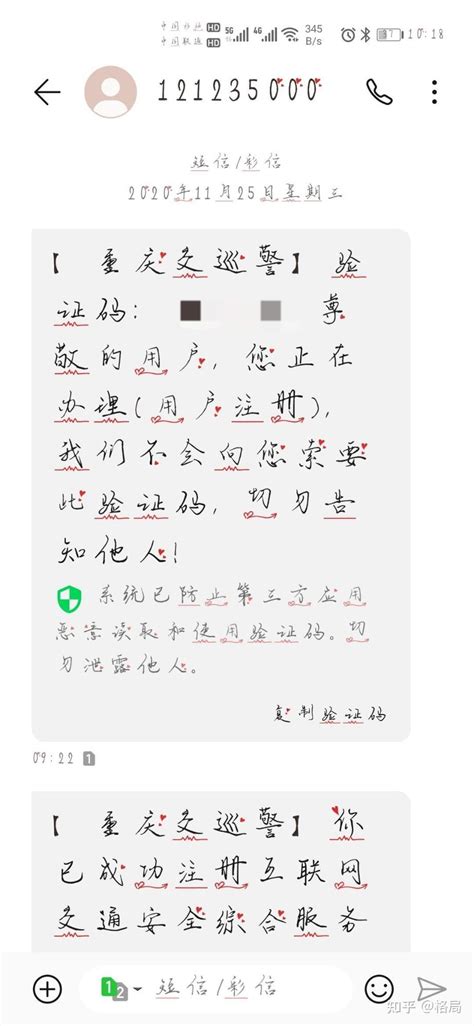 中国移动 HD 5G 4G 345 B/s 7 10:18
中国联通 HD
121235000
短信/彩信
2020年11月25日星期三
【重庆交巡警】验
证码： 尊
敬的用户，您正在
办理(用户注册)，
我们不会向您索要
此验证码，切勿告
知他人！
系统已防止第三方应用
恶意读取和使用验证码。切
勿泄露他人。
复制验证码
09:22 1
【重庆交巡警】你
已成功注册互联网
交通安全综合服务
1 2 短信/彩信
知乎 @格局